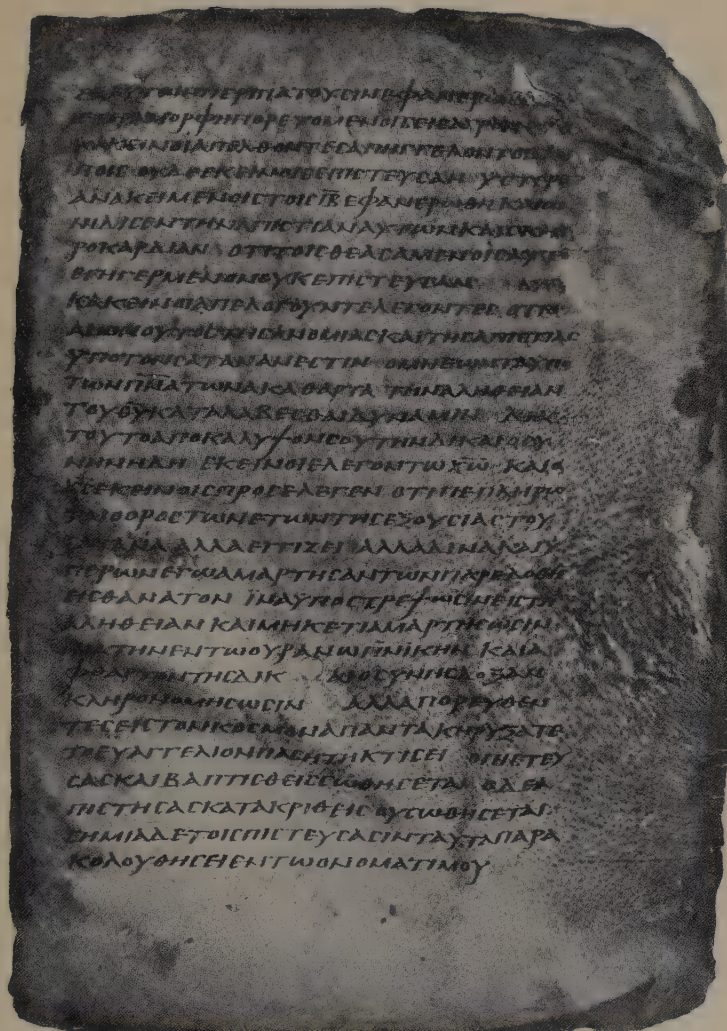 ΠΕΡΙΠΑΤΟΥCΙΝΕΦΑΝΕΡΩΘΗ
ΕΤΕΡΑΜΟΡΦΗΠΟΡΕΥΟΜΕΝΟΙCΕΙCΑΓΡΟΝ
ΚΑΚΕΙΝΟΙΑΠΕΛΘΟΝΤΕCΑΠΗΓΓΕΛΟΝΤΟΙC
ΠΟΙC ΟΥΔΕΕΚΕΙΝΟΙCΕΠΙCΤΕΥCΑΝ ΥCΤΕΡΟ
ΑΝΑΚΕΙΜΕΝΟΙCΤΟΙCΙΑΕΦΑΝΕΡΩΘΗΚΑΙΩ
ΝΙΔΙCΕΝΤΗΝΑΠΙCΤΙΑΝΑΥΤΩΝΚΑΙCΚΛΗ
ΡΟΚΑΡΔΙΑΝ ΟΤΙΤΟΙCΘΕΑCΑΜΕΝΟΙCΑΥΤΟ
ΕΓΗΓΕΡΜΕΝΟΝΟΥΚΕΠΙCΤΕΥCΑΝ
ΚΑΚΕΙΝΟΙΑΠΕΛΟΓΟΥΝΤΕΛΕΓΟΝΤΕC ΟΤΙΟ
ΑΙΩΝΟΥΤΟCΤΗCΑΝΟΜΙΑCΚΑΙΤΗCΑΠΙCΤΙΑC
ΥΠΟΤΟΝCΑΤΑΝΑΝΕCΤΙΝ ΟΜΗΕΩΝΤΑΥΠΟ
ΤΩΝΠΝΑΤΩΝΑΚΑΘΑΡΤΑ ΤΗΝΑΛΗΘΕΙΑΝ
ΤΟΥΘΥΚΑΤΑΛΑΒΕCΘΑΙΔΥΝΑΜΙΝ ΔΙΑ
ΤΟΥΤΟΑΠΟΚΑΛΥΨΟΝCΟΥΤΗΝΔΙΚΑΙΟCΥ
ΝΗΝΗΔΗ ΕΚΕΙΝΟΙΕΛΕΓΟΝΤΩΧΩ ΚΑΙΟ
ΧCΕΚΕΙΝΟΙCΠΡΟCΕΛΕΓΕΝ ΟΤΙΠΕΠΛΗΡΩ
ΤΑΙΟΟΡΟCΤΩΝΕΤΩΝΤΗCΕΞΟΥCΙΑCΤΟΥ
CΑΤΑΝΑ ΑΛΛΑΕΓΓΙΖΕΙ ΑΛΛΑΔΙΝΑΚΑΙΥ
ΠΕΡΩΝΕΓΩΑΜΑΡΤΗCΑΝΤΩΝΠΑΡΕΔΟΘΗ
ΕΙCΘΑΝΑΤΟΝ ΙΝΑΥΠΟCΤΡΕΨΩCΙΝΕΙCΤΗ
ΑΛΗΘΕΙΑΝ ΚΑΙΜΗΚΕΤΙΑΜΑΡΤΗCΩCΙΝ
ΙΝΑΤΗΝΕΝΤΩΟΥΡΑΝΩΠΝΙΚΗΝ ΚΑΙΑ
ΦΘΑΡΤΟΝΤΗCΔΙΚΑΙΟCΥΝΗCΔΟΞΑΝ
ΚΛΗΡΟΝΟΜΗCΩCΙΝ ΑΛΛΑΠΟΡΕΥΘΕΝ
ΤΕCΕΙCΤΟΝΚΟCΜΟΝΑΠΑΝΤΑΚΗΡΥΞΑΤΕ
ΤΟΕΥΑΓΓΕΛΙΟΝΠΑCΗΤΗΚΤΙCΕΙ ΟΠΙCΤΕΥ
CΑCΚΑΙΒΑΠΤΙCΘΕΙCCΩΘΗCΕΤΑΙ ΟΔΕΑ
ΠΙCΤΗCΑCΚΑΤΑΚΡΙΘΕΙCΟΥCΩΘΗCΕΤΑΙ
CΗΜΙΑΔΕΤΟΙCΠΙCΤΕΥCΑCΙΝΤΑΥΤΑΠΑΡΑ
ΚΟΛΟΥΘΗCΕΙΕΝΤΩΟΝΟΜΑΤΙΜΟΥ